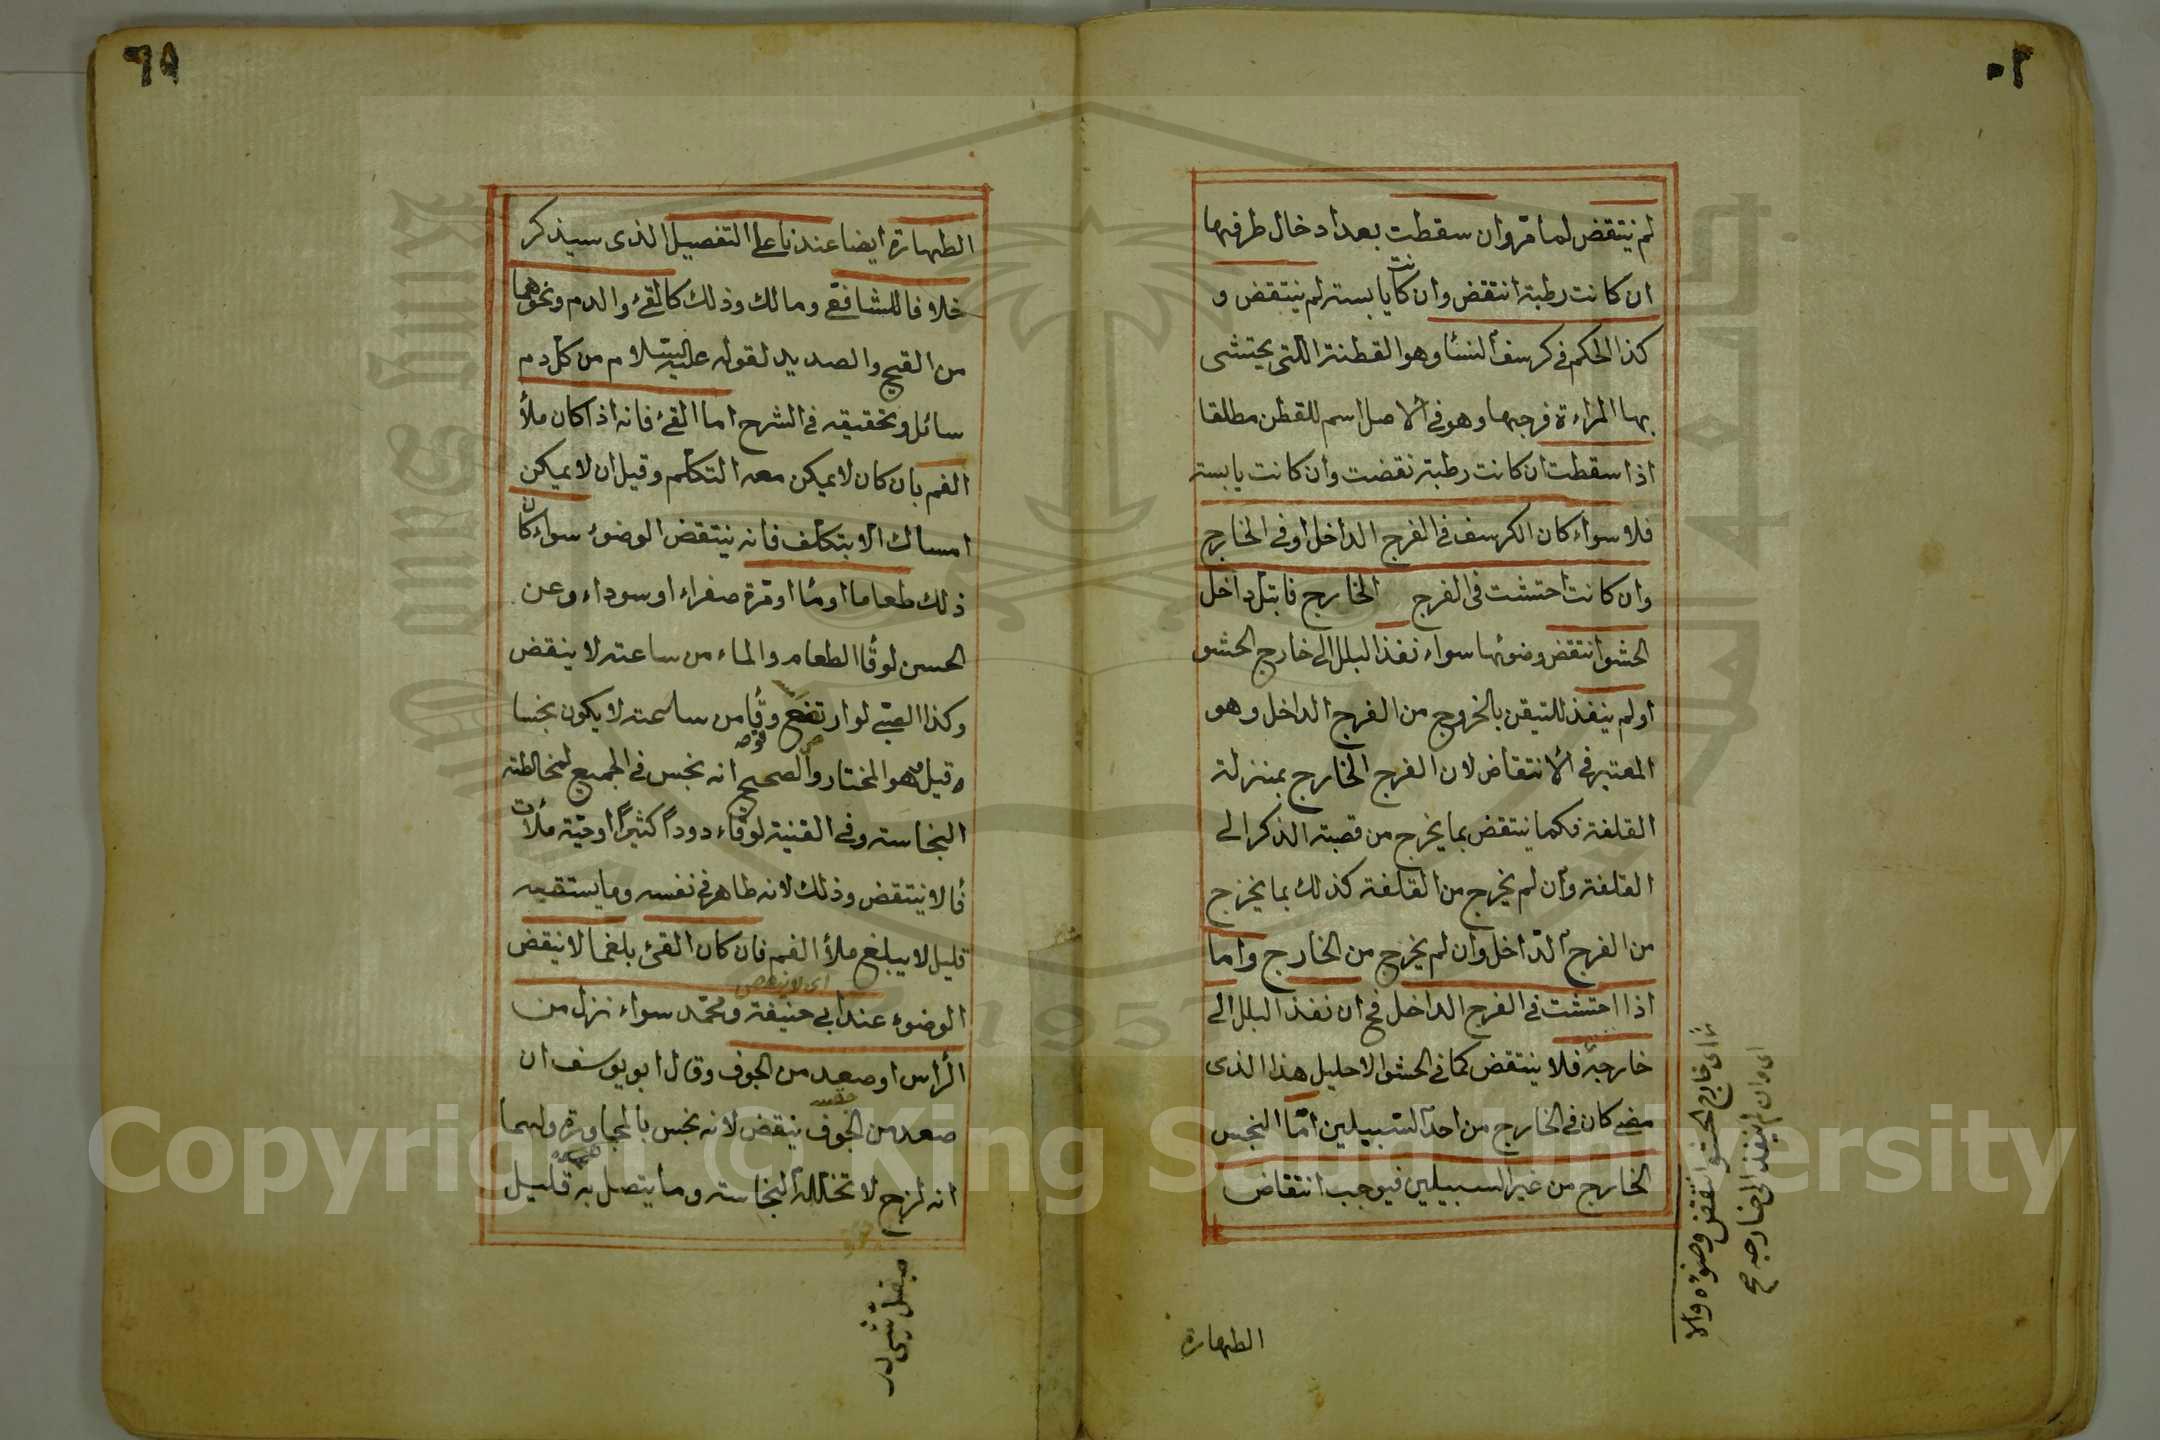 لم ينتقض لما مرّ وان سقطت بعد ادخال طرفها
ان كانت رطبة انتقض وان كانت يابسة لم ينتقض و
كذا الحكم في كرسف النسا وهو القطنة التى يحتشى
بها المراءة فرجها وهو في الاصل اسم للقطن مطلقا
اذا سقطت ان كانت رطبة نقضت وان كانت يابسة
فلا سواء كان الكرسف في الفرج الداخل او في الخارج
وان كانت احتشت في الفرج الخارج فابتل داخل
الحشو انتقض وضوئها سواء نفذ البلل الى خارج الحشو
او لم ينفذ للتيقن بالخروج من الفرج الداخل وهو
المعتبر في الانتقاض لان الفرج الخارج بمنزلة
القلفة فكما ينتقض بما يخرج من قصبة الذكر الى
القلفة وان لم يخرج من القلفة كذلك بما يخرج
من الفرج الداخل وان لم يخرج من الخارج واما
اذا احتشت في الفرج الداخل فح ان نفذ البلل الى
خارجه فلا ينتقض كما في الحشو الاحليل هذا الذى
مضى كان في الخارج من احد السبيلين امّا النجس
الخارج من غير السبيلين فيوجب انتقاض
الطهارة
اى خارج الحشو انتقض وضوءه والا
اى وان لم ينفذ الى خارجه صح
٦٥
الطهارة ايضا عندنا على التفصيل الذى سيذكر
خلافا للشافعى ومالك وذلك كالقئ والدم ونحوهما
من القيح والصديد لقوله عليه السلام من كل دم
سائل وتحقيقه في الشرح اما القئ فانه اذا كان ملأ
الفم بان كان لا يمكن معه التكلم وقيل ان لا يمكن
امساك الا بتكلف فانه ينتقض الوضوء سواء كان
ذلك طعاما او مًا او مرة صفراء او سوداء وعن
الحسن لو قًا الطعام والماء من ساعته لا ينقض
وكذا الصبى لو ارتضع وقًا من ساعته لا يكون نجسا
وقيل هو المختار والصحيح انه نجس في الجميع لمخالطته
النجاسة وفي القنية لو قاء دوداً كثيرًا او حيّة ملأت
فًا لا ينتقض وذلك لانه طاهر في نفسه وما يستتبعه
قليل لا يبلغ ملأ الفم فان كان القئ بلغما لا ينقض
اى لا ينقض
الوضوء عند ابى حنيفة ومحمّد سواء نزل من
الراس او صعد من الجوف وقال ابو يوسف ان
صعد من الجوف ينقض لانه نجس بالمجاورة ولهما
انه لزج لا تخلله النجاسة وما يتصل به قليل